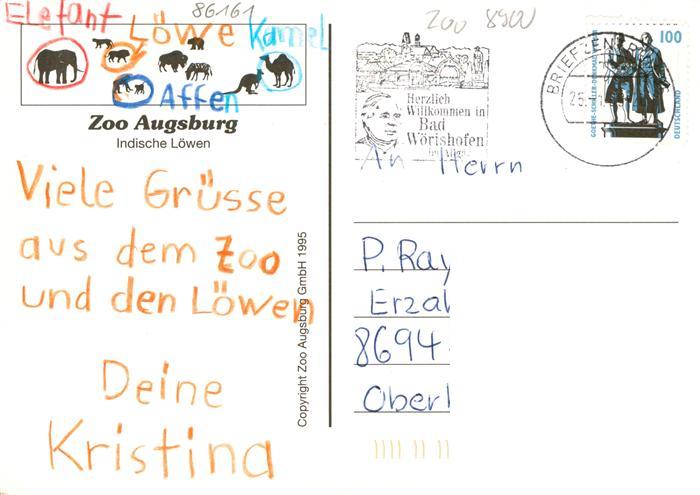 86161
Zoo 8900
Elefant Löwe Kamel
Affen
Zoo Augsburg
Indische Löwen
Viele Grüsse
aus dem Zoo
und den Löwen
Deine
Kristina
Copyright Zoo Augsburg GmbH 1995
Herzlich
Willkommen in
Bad
Wörishofen
im Allgäu
BRIEFZENTR
25.
100
GOETHE-SCHILLER-DENKMAL
DEUTSCHLAND
An Herrn
P. Ray
Erza
8694
Ober